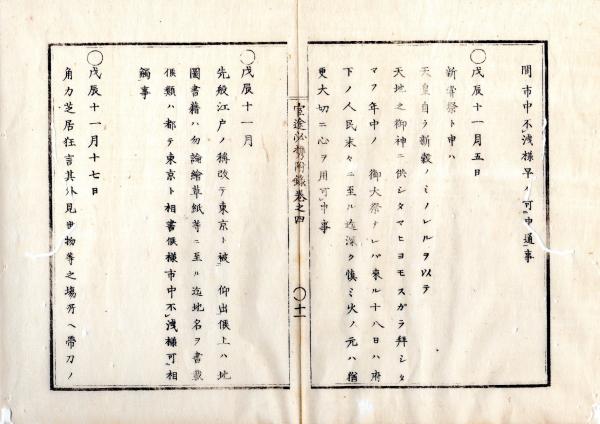 間市中不洩様早々可申通事
○戊辰十一月五日
新嘗祭ト申ハ
天皇自ラ新穀ノミノレルヲ以テ
天地之御神ニ供シタマヒヨモスガラ拜シタ
マフ年中ノ 御大祭ナレバ來ル十八日ハ府
下ノ人民末々ニ至ル迄深ク慎ミ火ノ元ハ猶
更大切ニ心ヲ用可申事
官途必携附録巻之四
○十一
○戊辰十一月
先般江戸ノ稱改テ東京ト被 仰出候上ハ地
圖書籍ハ勿論繪草紙等ニ至ル迄地名ヲ書載
候類ハ都テ東京ト相書候様市中不洩様可相
觸事
○戊辰十一月十七日
角力芝居狂言其外見世物等之場所ヘ帶刀ノ